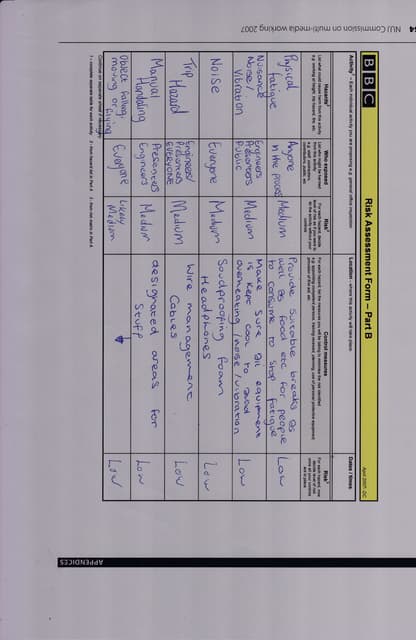 NUJ Commission on multi-media working 2007
BBC
Risk Assessment Form – Part B
April 2007
Activity¹ - Each individual activity you are assessing
Location - where this activity will take place
Dates / times
Hazards²
Who exposed
Risk³
Control measures
Risk³
Physical fatigue
Anyone in the process
Medium
Provide suitable breaks as well as food etc for people to consume to stop fatigue
Low
Nuisance Noise/Vibration
Engineers Presenters Public
Medium
Make sure all equipment is kept cool to avoid overheating/noise/vibration
Low
Noise
Everyone
Medium
Soundproofing foam
Headphones
Low
Trip Hazard
Engineers/Presenters EVERYONE
Medium
Wire management
Cables
Low
Manual Handling
Presenters Engineers
Medium
designated areas for stuff
Low
Object falling, moving or flying
Everyone
Likely Medium
Low
Continue on separate sheet if necessary
1 - complete separate table for each activity
2 - from hazard list in Part A
3 - from risk matrix in Part A
APPENDICES